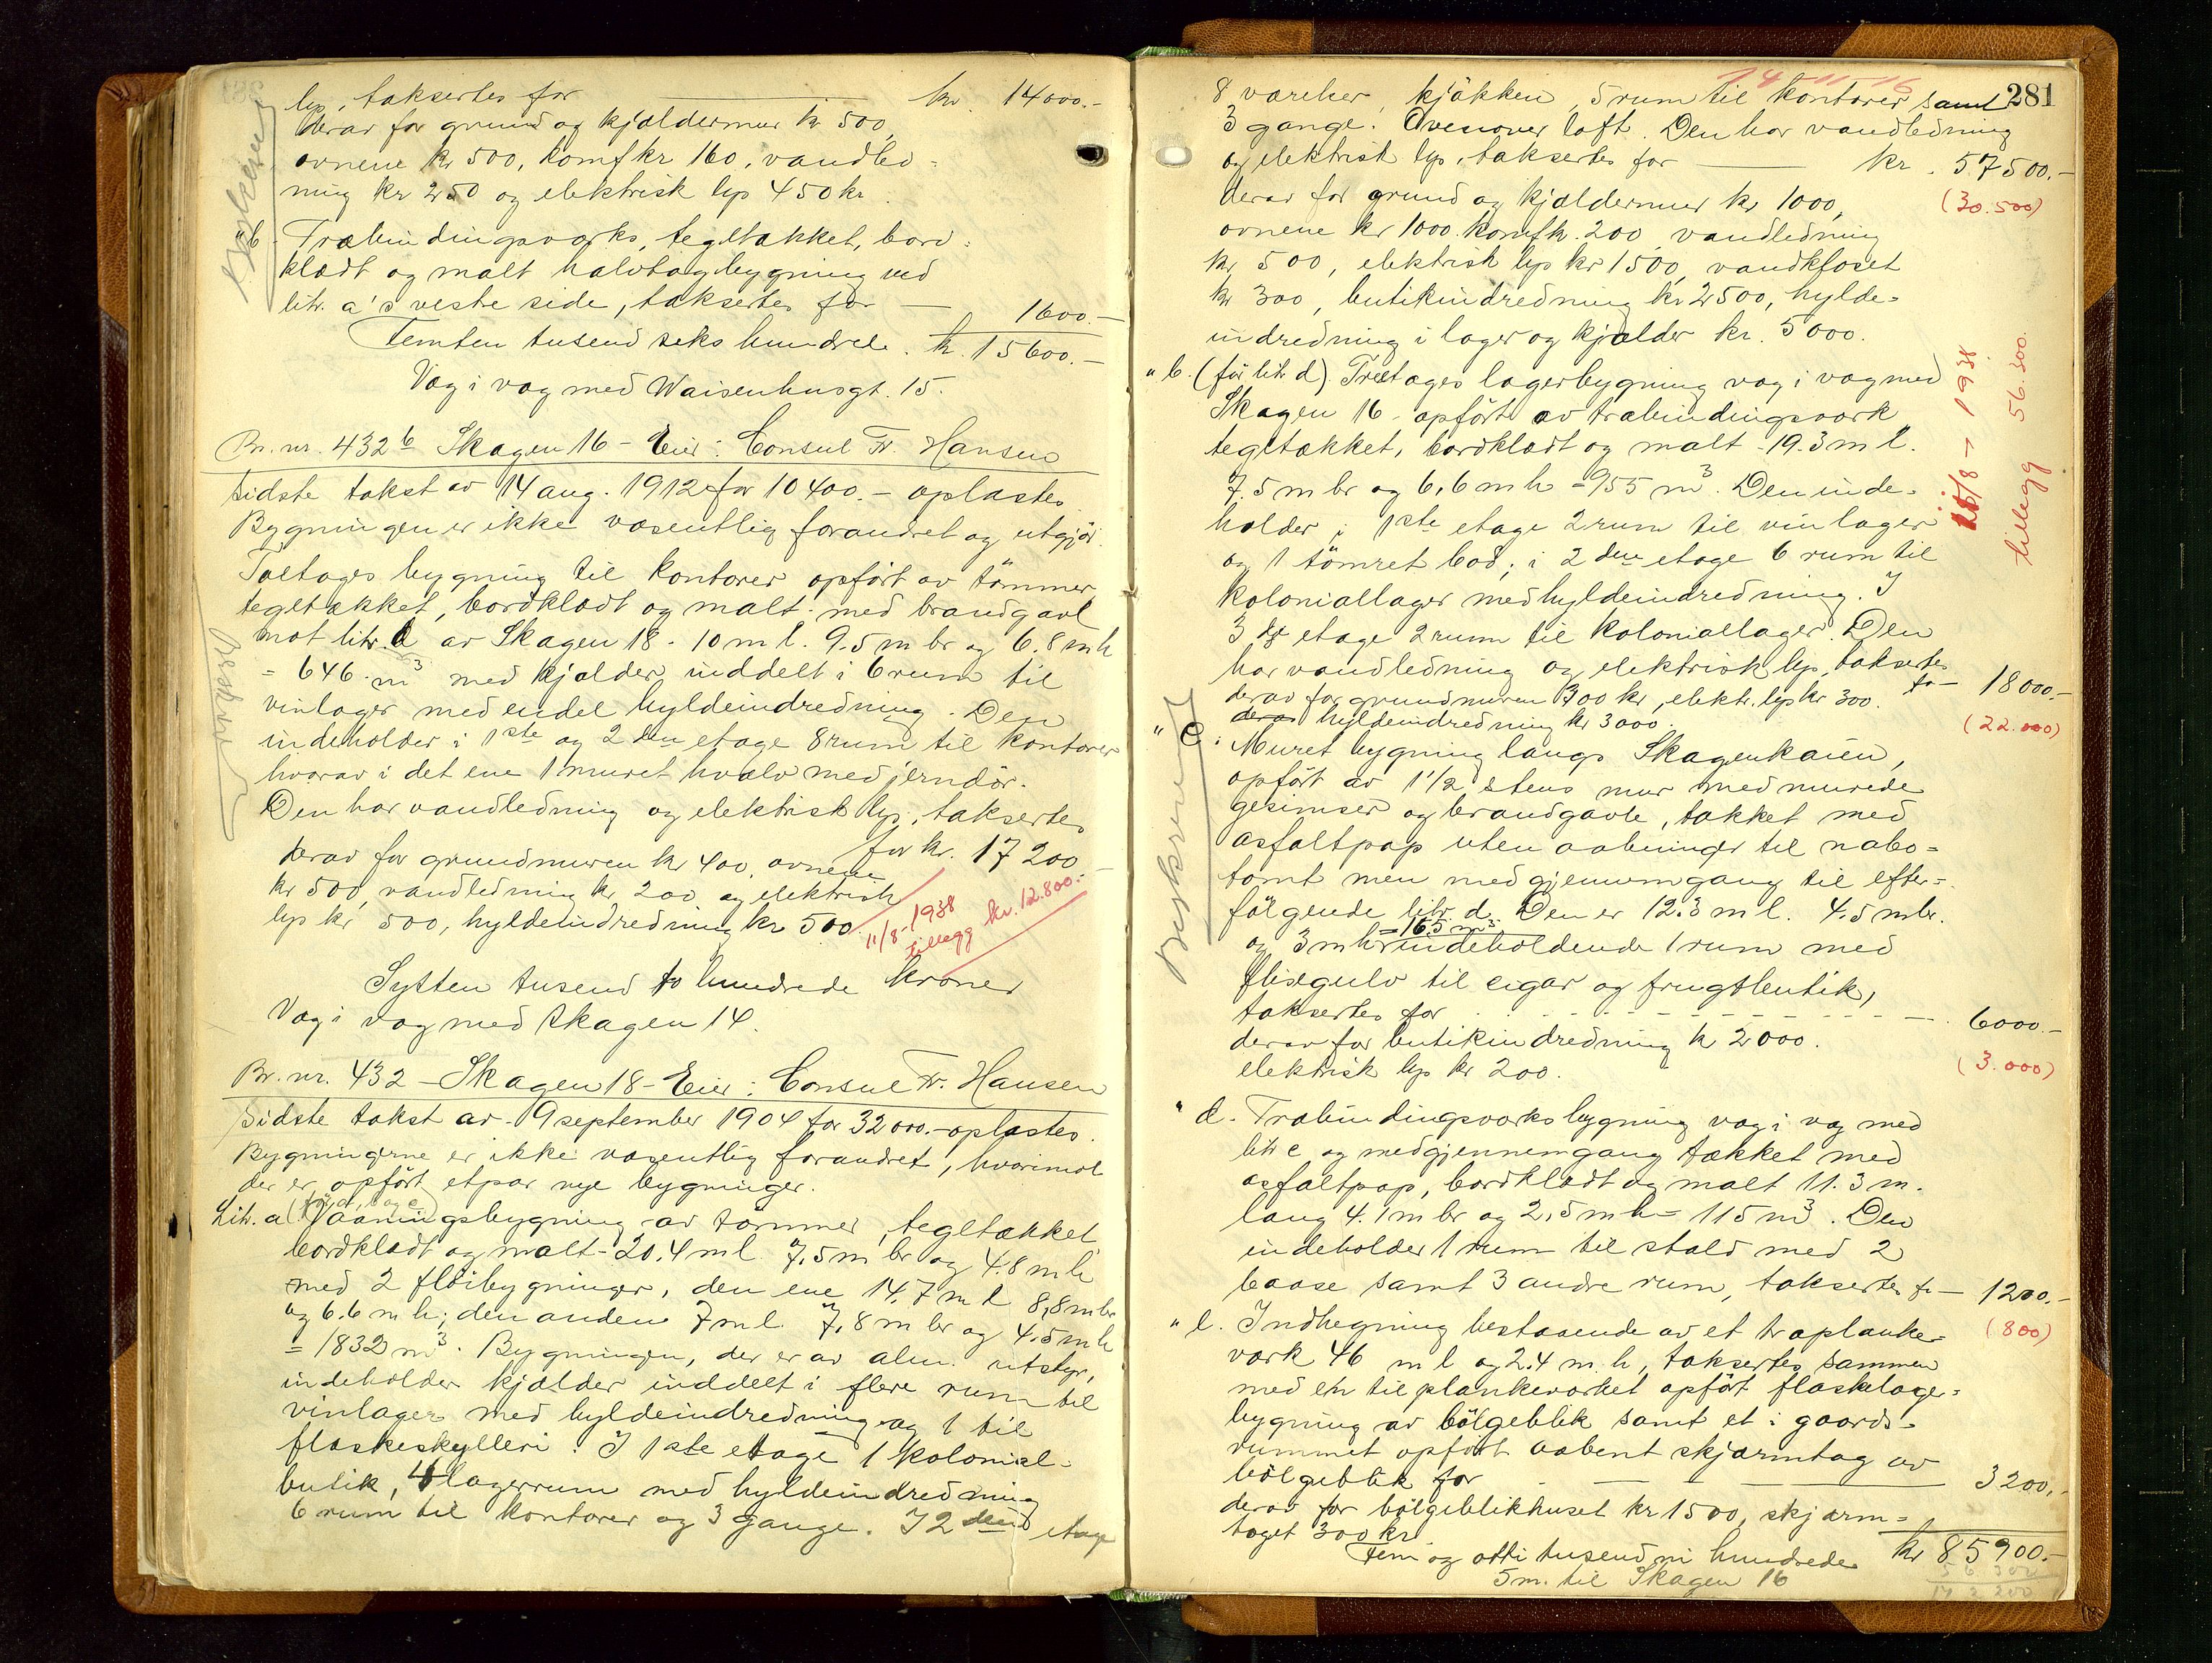 lys, taksertes for kr. 14000.-
derav for grund og kjældermur kr 500,
ovnene kr 500, komf kr 160, vandled=
ning kr 250 og elektrisk lys 450 kr.
" b. Træbindingsværks, tegltækket, bord=
klædt og malt halvtagbygning ved
litr. a's vestre side, taksertes for — 1600.-
Femten tusend seks hundrede. kr. 15600.-
Væg i væg med Waisenhusgt. 15.
Br. nr. 432b Skagen 16 - Eier: Consul Fr. Hansen
Sidste takst av 14 aug. 1912 for 10400.- oplæstes.
Bygningen er ikke væsentlig forandret og utgjør:
Toetages bygning til kontorer opført av tømmer,
tegltækket, bordklædt og malt med brandgavl
mot litr. a av Skagen 18. 10 m l. 9.5 m br og 6.8 m h
= 646 m3 med kjælder inddelt i 6 rum til
vinlager med endel hyldeindredning. Den
indeholder i 1ste og 2den etage 8 rum til kontorer
hvorav i det ene 1 muret hvælv med jerndør.
Den har vandledning og elektrisk lys, taksertes
for kr. 17200.-
derav for grundmuren kr 400, ovnene
kr 500, vandledning kr 200 og elektrisk
lys kr 500, hyldeindredning kr 500.
11/8-1938
tillegg kr. 12.800.-
Sytten tusend to hundrede kroner
Væg i væg med Skagen 14.
Br. nr. 432 - Skagen 18 - Eier: Consul Fr. Hansen
Sidste takst av 9 september 1904 for 32000.- oplæstes.
Bygningerne er ikke væsentlig forandret, hvorimot
der er opført etpar nye bygninger.
Litr. a (før a, b og c) Vaaningsbygning av tømmer, tegltækket,
bordklædt og malt - 20.4 m l 7.5 m br og 4.8 m h
med 2 fløibygninger, den ene 14.7 m l 8,8 m br
og 6.6 m h; den anden 7 m l 7,8 m br og 4.5 m h
= 1832 m3. Bygningen, der er av alm. utstyr,
indeholder kjælder inddelt i flere rum til
vinlager med hyldeindredning og 1 til
flaskeskylleri. I 1ste etage 1 kolonial-
butik, 4 lagerrum med hyldeindredning
6 rum til kontorer og 3 gange. I 2den etage
Beskrevet
Beskrevet
281
14-11-16
8 værelser, kjøkken, 5 rum til kontorer samt
3 gange. Ovenover loft. Den har vandledning
og elektrisk lys, taksertes for — kr. 57500.-
(30.500)
derav for grund og kjældermur kr 1000,
ovnene kr 1000. komf kr. 200, vandledning
kr 500, elektrisk lys kr 1500, vandkloset
kr 300, butikindredning kr 2500, hylde=
indredning i lager og kjælder kr. 5000.
" b. (før litr d) Treetages lagerbygning væg i væg med
Skagen 16 - opført av træbindingsværk
tegltækket, bordklædt og malt - 19.3 m l.
7.5 m br og 6,6 m h = 955 m3. Den inde=
holder i 1ste etage 2 rum til vinlager
og 1 tømret bod; i 2den etage 6 rum til
koloniallager med hyldeindredning. I
3dje etage 2 rum til koloniallager. Den
har vandledning og elektrisk lys, taksertes
for — 18000.-
(22.000)
derav for grundmuren 300 kr, elektr. lys kr 300.
derav hyldeindredning kr 3000.
" c. Muret bygning langs Skagenkaien,
opført av 1 1/2 stens mur med murede
gesimser og brandgavle, tækket med
asfaltpap uten aabninger til nabo=
tomt men med gjennemgang til efter=
følgende litr. d. Den er 12.3 m l. 4.5 m br.
og 3 m h = 165 m3 indeholdende 1 rum med
flisegulv til cigar og frugtbutik,
taksertes for 6000.-
(3.000)
derav for butikindredning kr 2000.
elektrisk lys kr 200.
" d. Træbindingsværksbygning væg i væg med
litr c og med gjennemgang tækket med
asfaltpap, bordklædt og malt 11.3 m.
lang 4.1 m br og 2,5 m h = 115 m3. Den
indeholder 1 rum til stald med 2
baase samt 3 andre rum, taksertes for — 1200.-
(800)
" e. Indhegning bestaaende av et træplanke=
værk 46 m l og 2.4 m. h, taksertes sammen
med en til plankeværket opført flaskelager=
bygning av bølgeblik samt et i gaards=
rummet opført aabent skjærmtag av
bølgeblik for — 3200.-
derav for bølgeblikhuset kr 1500, skjærm=
taget 300 kr.
Fem og otti tusend ni hundrede kr 85900.-
5 m. til Skagen 16
56.300
142200
Beskrevet
11/8 - 1938
tillegg 56.300.